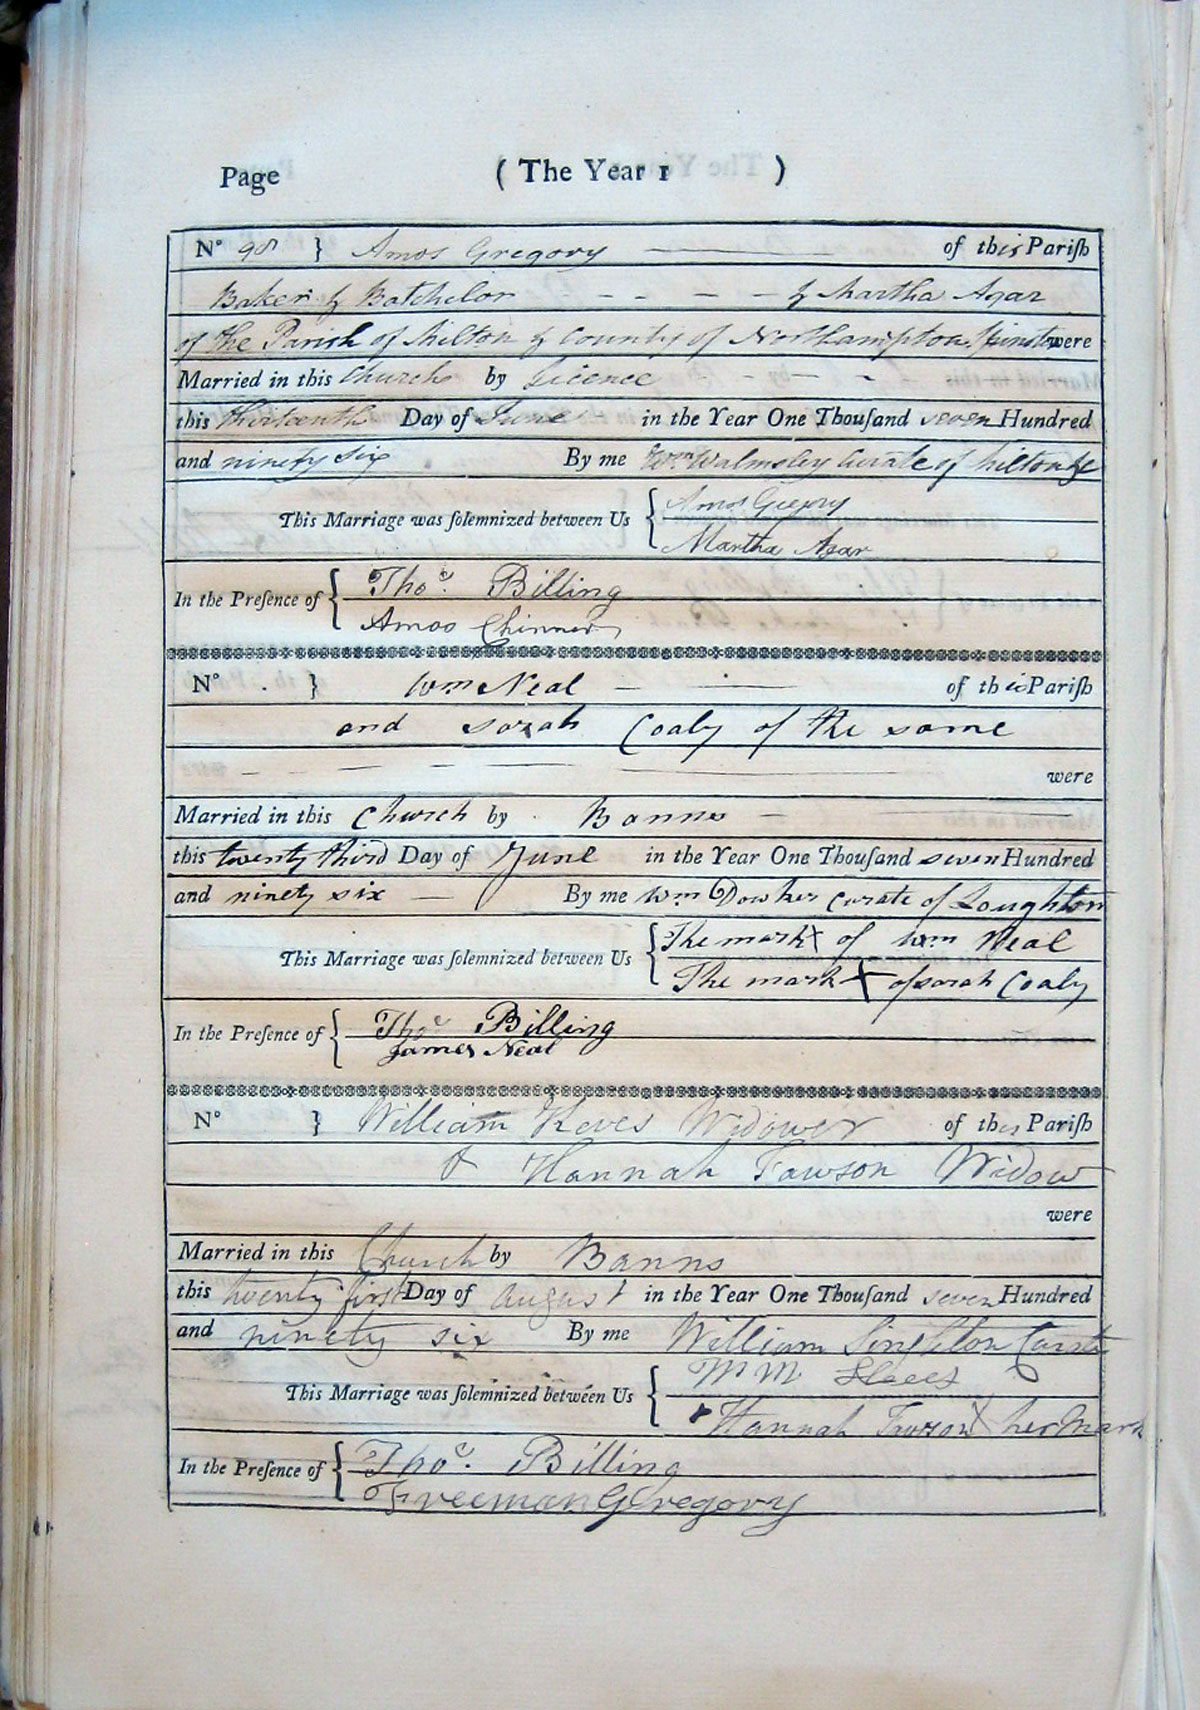 Page (The Year 1 )
No 98 } Amos Gregory of this Pariſh
Baker & Batchelor - - - - & Martha Agar
of the Parish of Milton & County of Northampton were
Married in this Church by Licence - - - -
this thirteenth Day of June in the Year One Thouſand seven Hundred
and ninety six By me Wm Walmsley Curate of Milton &c
This Marriage was ſolemnized between Us { Amos Gregory
Martha Agar
In the Preſence of { Thos. Billing
Amos Chinner
No . } Wm Neal — - of this Pariſh
and sarah Coaly of the same
were
Married in this Church by Banns —
this twenty third Day of June in the Year One Thouſand seven Hundred
and ninety six — By me Wm Dowker Curate of Loughton
This Marriage was ſolemnized between Us { The mark X of Wm Neal
The mark X of sarah Coaly
In the Preſence of { Thos Billing
James Neal
No } William Widower of this Pariſh
& Hannah Fawson Widow
were
Married in this Church by Banns
this twenty first Day of august in the Year One Thouſand seven Hundred
and ninety six By me William Singleton Curate
This Marriage was ſolemnized between Us { Wm
Hannah Fawson X her Mark
In the Preſence of { Thos. Billing
Freeman Gregory